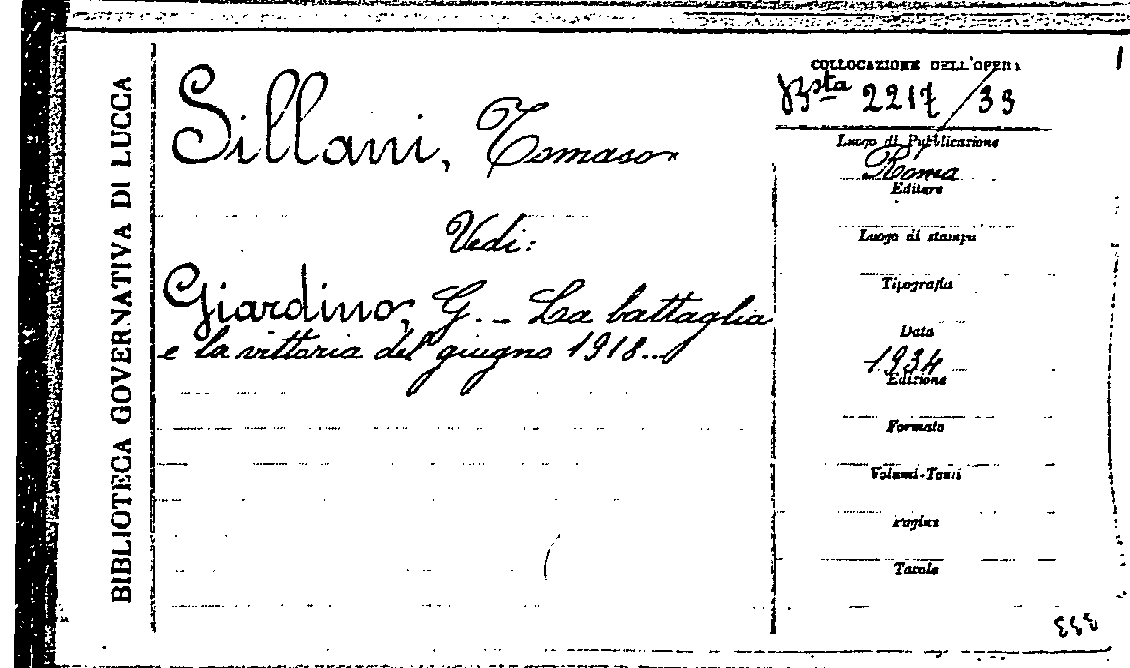 BIBLIOTECA GOVERNATIVA DI LUCCA
Sillani, Tomaso
Vedi:
Giardino, G. - La battaglia
e la vittoria del giugno 1918...
COLLOCAZIONE DELL'OPERA
Bsta 2217/33
Luogo di Pubblicazione
Roma
Editore
Luogo di stampa
Tipografia
Data
1934
Edizione
Formato
Volumi-Tomi
Pagine
Tavole